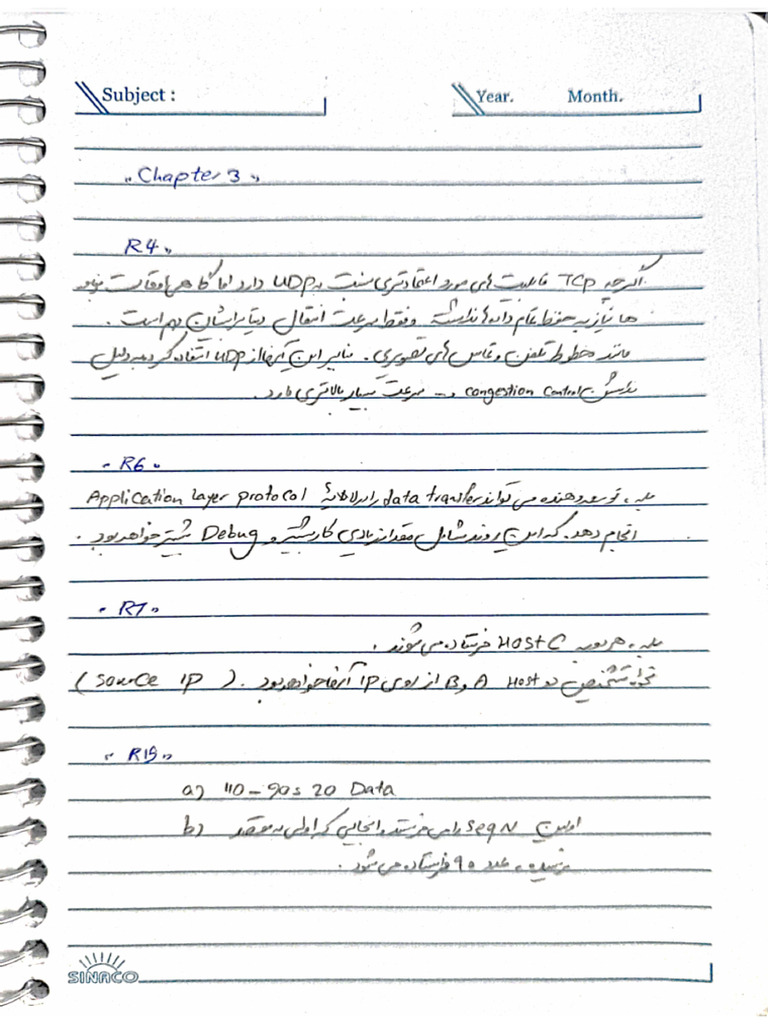 Subject :
Year. Month.
" Chapter 3 "
R4 "
اگرچه TCP قابلیت های مورد اعتمادتری نسبت به UDP دارد اما گاهی اوقات
ها نیاز به حفظ تمام داده ها نداشته و فقط سرعت انتقال دیتا برایشان مهم است .
مانند خطوط تلفن و تماس های تصویری . بنابراین آنها از UDP استفاده کرده به دلیل
نداشتن congestion control و ... سرعت بسیار بالاتری دارد .
" R6 "
بله ، توسعه دهنده می تواند data transfer را در لایه Application layer protocol
انجام دهد . که این روند شامل مقدار زیادی کار بیشتر و Debug بیشتر خواهد بود .
" R7 "
بله ، هر دو به Host C فرستاده می شوند .
نحوه تشخیص دو Host A و B از روی IP آنها خواهد بود . ( source IP )
" R15 "
a) 110 - 90 = 20 Data
b) اولین SeqN را می فرستد ، از آنجایی که اولی به مقصد
نرسیده ، عدد 90 فرستاده می شود .
SINACO